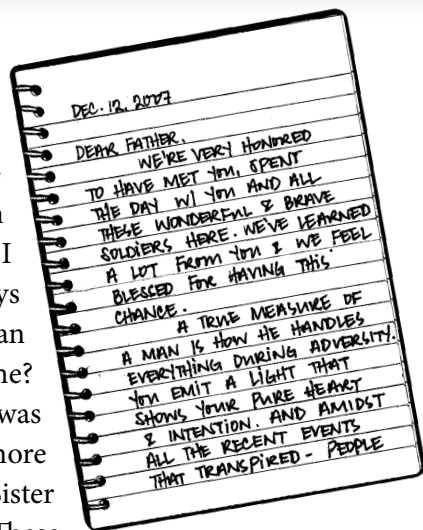 I
ys
an
ne?
was
nore
Sister
DEC. 12, 2007
DEAR FATHER,
WE'RE VERY HONORED
TO HAVE MET YOU, SPENT
THE DAY W/ YOU AND ALL
THESE WONDERFUL & BRAVE
SOLDIERS HERE. WE'VE LEARNED
A LOT FROM YOU & WE FEEL
BLESSED FOR HAVING THIS
CHANCE.
A TRUE MEASURE OF
A MAN IS HOW HE HANDLES
EVERYTHING DURING ADVERSITY.
YOU EMIT A LIGHT THAT
SHOWS YOUR PURE HEART
& INTENTION. AND AMIDST
ALL THE RECENT EVENTS
THAT TRANSPIRED - PEOPLE